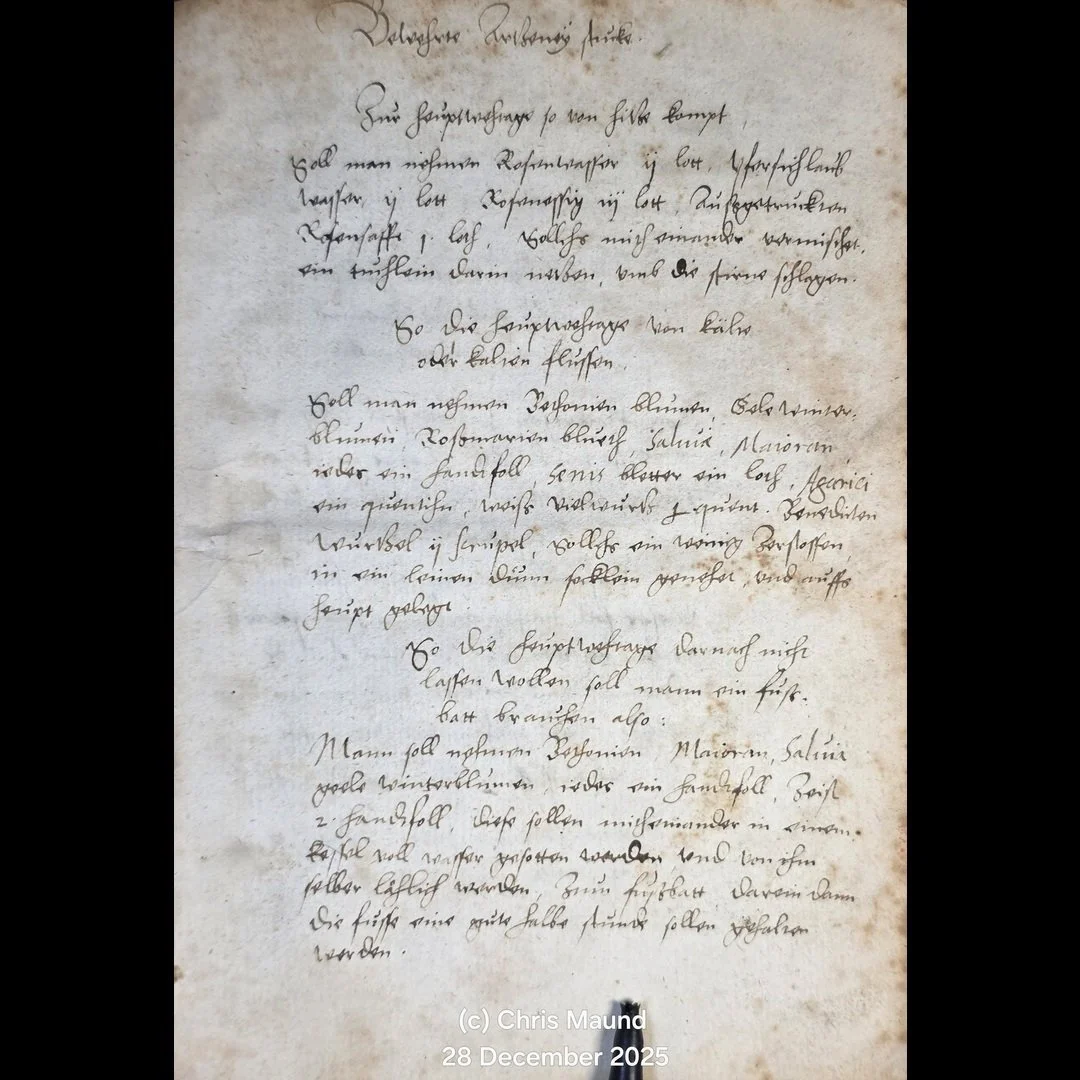 Bewehrte Artzeney stucke.
Zur heuptwehtage so von hitze kompt,
Soll man nehmen Rosenwasser ij lott, Pfersichlaub
wasser ij lott Rosenessig iij lott, Außgetruckten
Rosensafft 1. loth, Sollichs mitt einander vermischet,
ein tuchlein darin netzen, umb die stirne schlagen.
So die heuptwehtage von kälte
oder kalten flussen.
Soll man nehmen Bethonien blumen, Gele winter-
blumen, Roßmarien blueth, Salvia, Maioran,
iedes ein handtfoll, senis bletter ein loth, Agarici
ein quentihn, weiß vielwurtz quent. Benedicten
wurtzel ij scrupel, Sollichs ein wenig zerstossen,
in ein leinen dünn secklein genehet, und auffs
heupt gelegt.
So die heuptwehtage darnach nicht
lassen wollen soll mann ein fuß-
batt brauchen also:
Mann soll nehmen Bethonien, Maioran, Salvia
geele winterblumen, iedes ein handtfoll,
2. handtfoll, diese sollen mitheinander in einem
kessel voll wasser gesotten werden und von ihm
selber lählich werden, zum fußbatt darein dann
die fusse eine gute halbe stunde sollen gehalten
werden.
(c) Chris Maund
28 December 2025